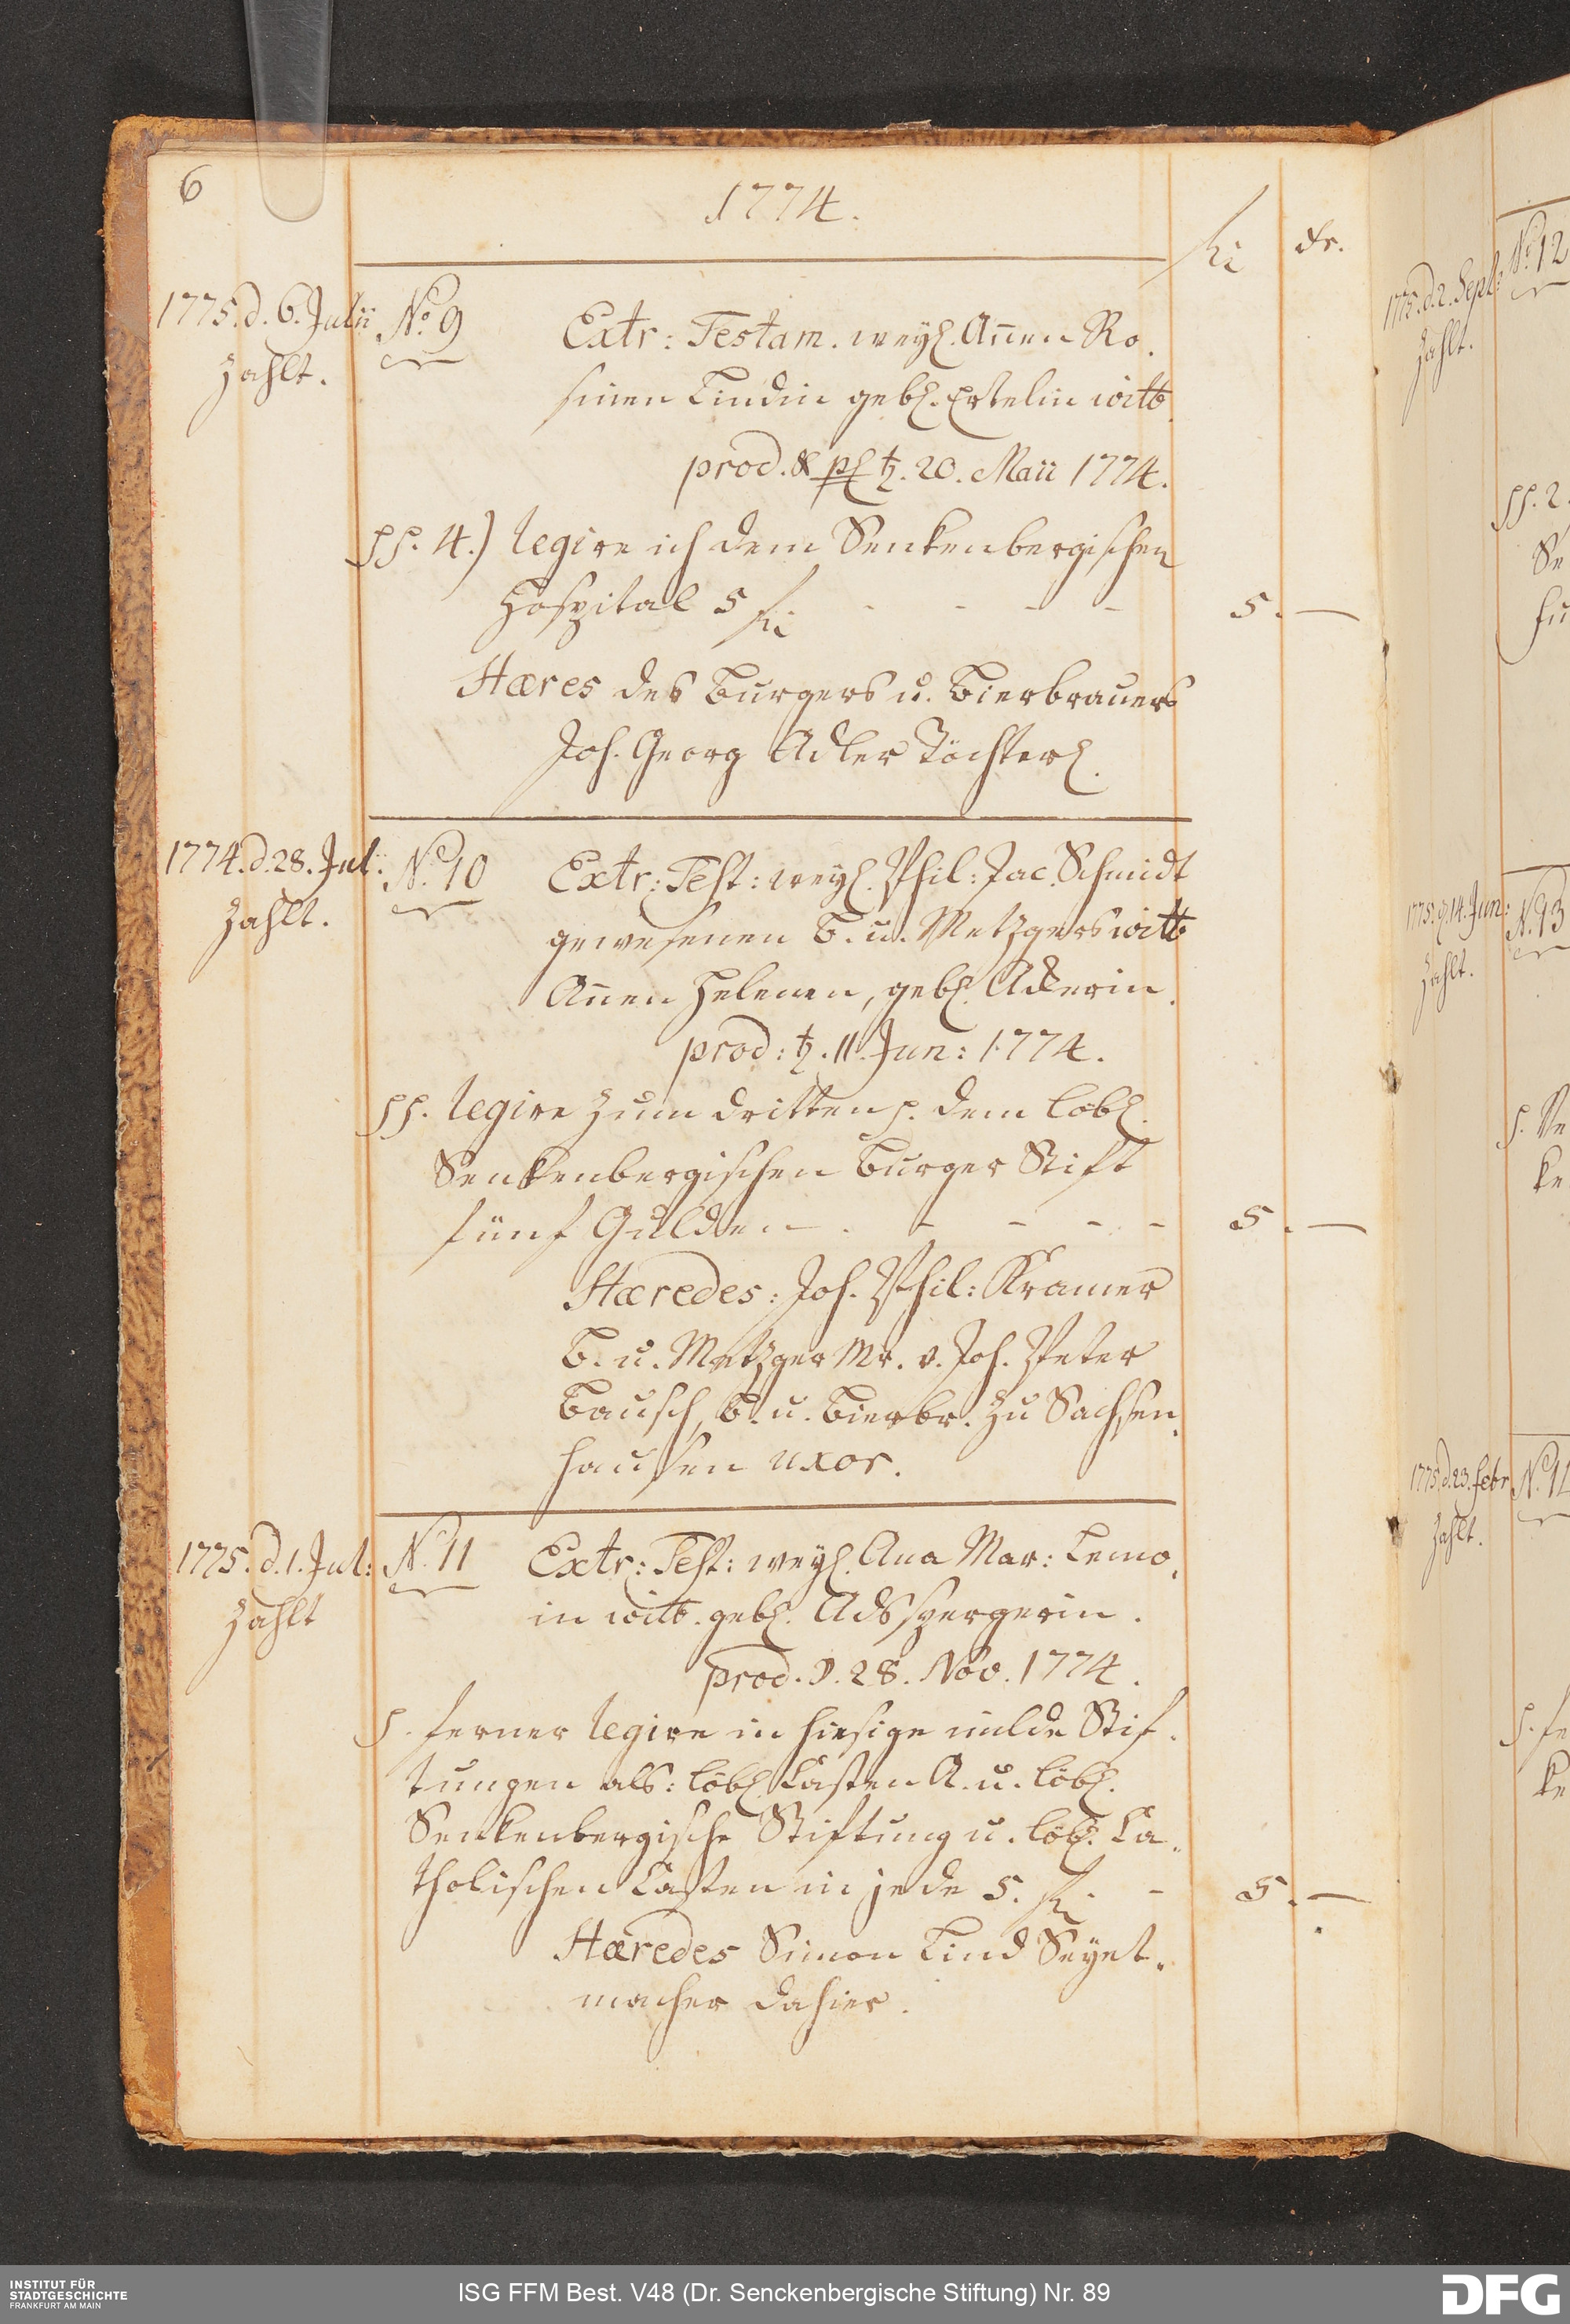 6
1774.
fl. Xr.
1775. d. 6. Julii
zahlt.
No. 9
Extr: Testam. weyl. Anen Ro-
sinen Lindin gebl. Ertelin witb.
prod. & pl ♄. 20. Maii 1774.
pp. 4.) legire ich dem Senkenbergischen
Hospital 5 fl. - - - - 5. —
Hæres des Burgers u. Bierbrauers
Joh. Georg Adler Töchterl.
1774. d. 28. Jul:
zahlt.
No. 10
Extr: Test: weyl. Phil: Jac. Schmidt
gewesenen B. u. Metzgers witb
Anen Helenen, gebl. Ackerin.
prod: ♄. 11. Jun: 1774.
pp. legire zum dritten p. dem löbl.
Senkenbergischen Burger Stift
fünf Gulden - - - - - 5. —
Hæredes: Joh. Phil: Kramer
B. u. Metzger Mr. v. Joh. Peter
Bausch, B. u. Bierbr. zu Sachsen-
hausen uxor.
1775. d. 1. Jul:
zahlt
No. 11
Extr: Test: weyl. Ana Mar: Lemo-
in witb. gebl.
prod. 28. Nov. 1774.
p. ferner legire in hiesige milde Stif-
tungen als: löbl. Casten A. u. löbl.
Senkenbergische Stiftung u. löbl. Ca-
tholischen Casten in jede 5. fl. - - 5. —
Hæredes Simon Lind Seyet-
macher dahier.
1775. d. 2. Sept:
zahlt.
No. 12
pp. 2.
Se
fü
1775. d. 14. Jun:
zahlt.
No. 13
p. Ve
ke
1775. d. 23. febr
zahlt.
No. 14
p. fe
ke
INSTITUT FÜR
STADTGESCHICHTE
FRANKFURT AM MAIN
ISG FFM Best. V48 (Dr. Senckenbergische Stiftung) Nr. 89
DFG